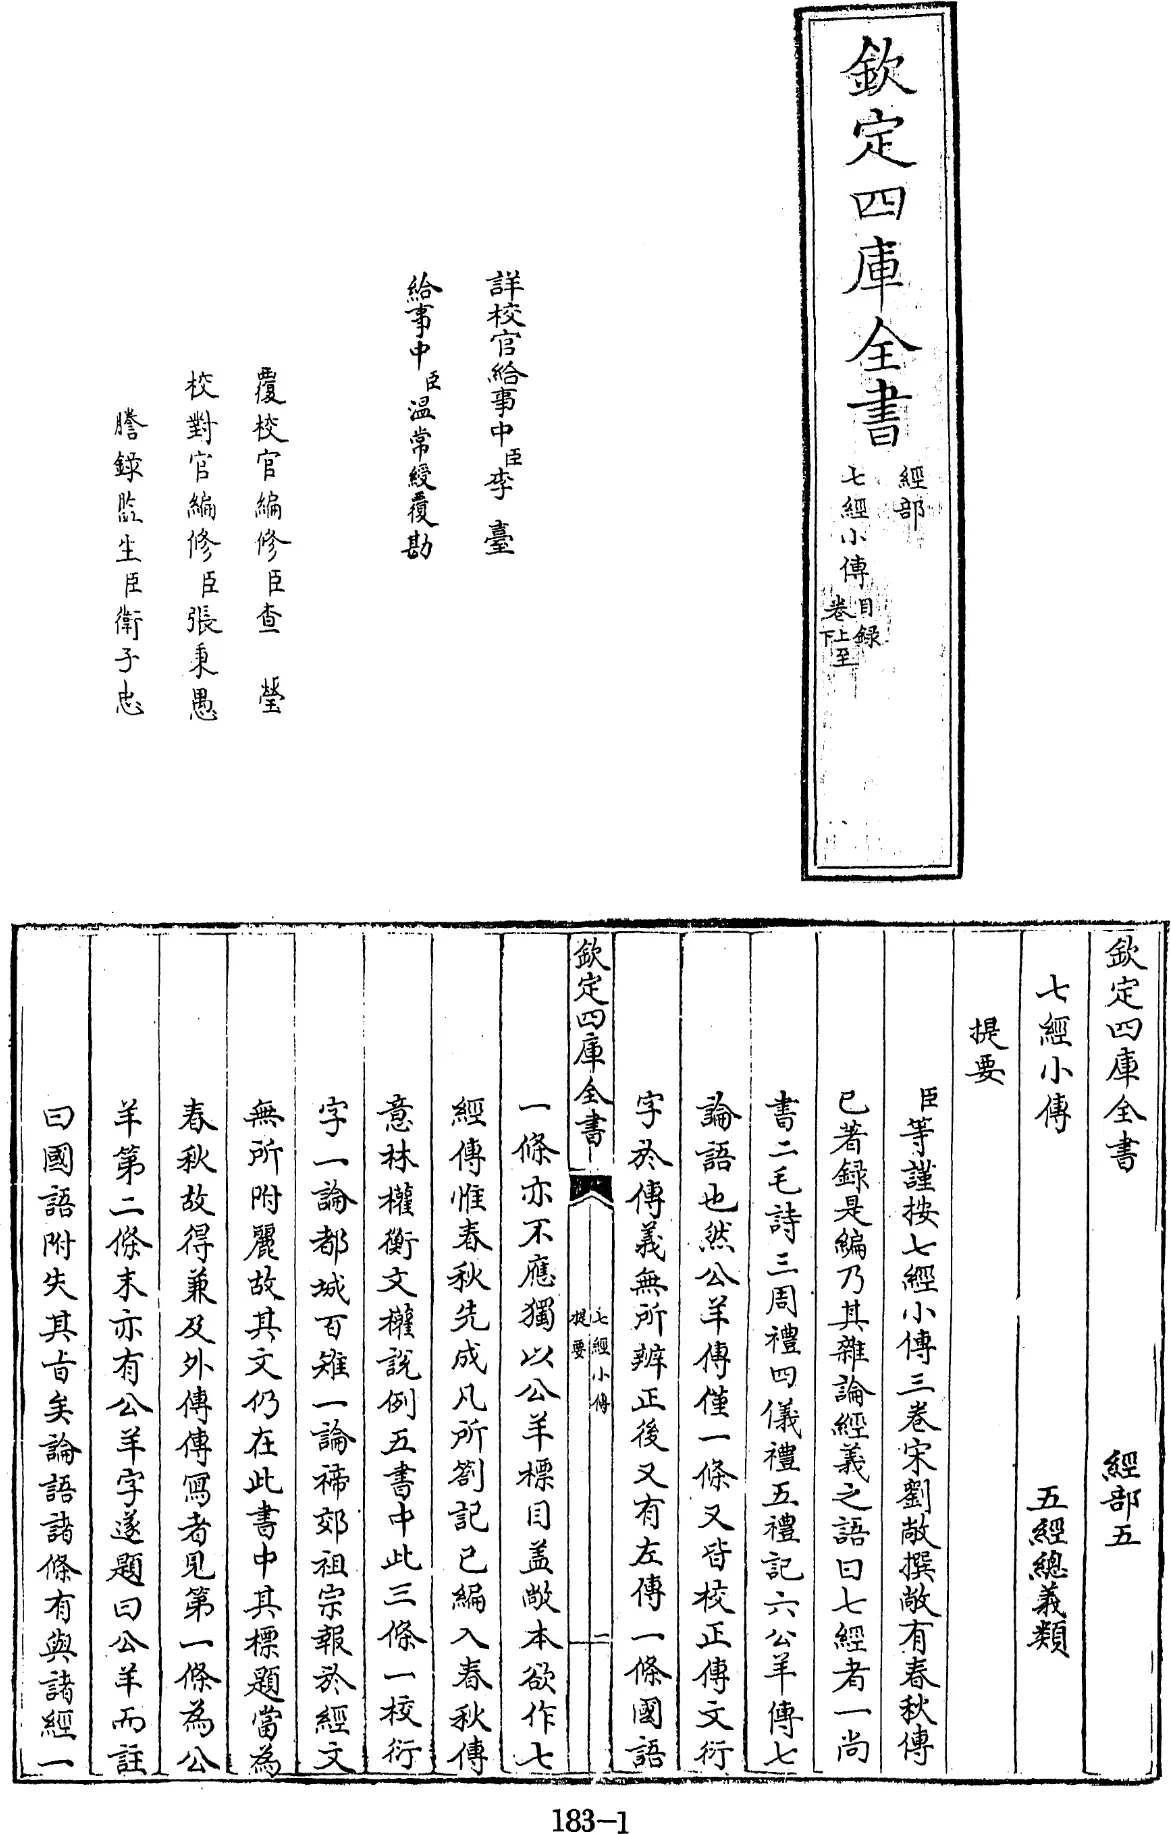 欽定四庫全書
經部
七經小傳
目録
卷上至
下
詳校官給事中臣李臺
給事中臣温常綬覆勘
覆校官編修臣查瑩
校對官編修臣張秉愚
謄録監生臣衛子忠
欽定四庫全書 經部五
七經小傳 五經總義類
提要
臣等謹按七經小傳三卷宋劉敞撰敞有春秋傳
已著録是編乃其雜論經義之語曰七經者一尚
書二毛詩三周禮四儀禮五禮記六公羊傳七
論語也然公羊傳僅一條又皆校正傳文衍
字於傳義無所辨正後又有左傳一條國語
欽定四庫全書
七經小傳
提要
一
一條亦不應獨以公羊標目盖敞本欲作七
經傳惟春秋先成凡所劄記已編入春秋傳
意林權衡文權說例五書中此三條一校衍
字一論都城百雉一論禘郊祖宗報於經文
無所附麗故其文仍在此書中其標題當為
春秋故得兼及外傳傳寫者見第一條為公
羊第二條末亦有公羊字遂題曰公羊而註
曰國語附失其旨矣論語諸條有與諸經一
183-1